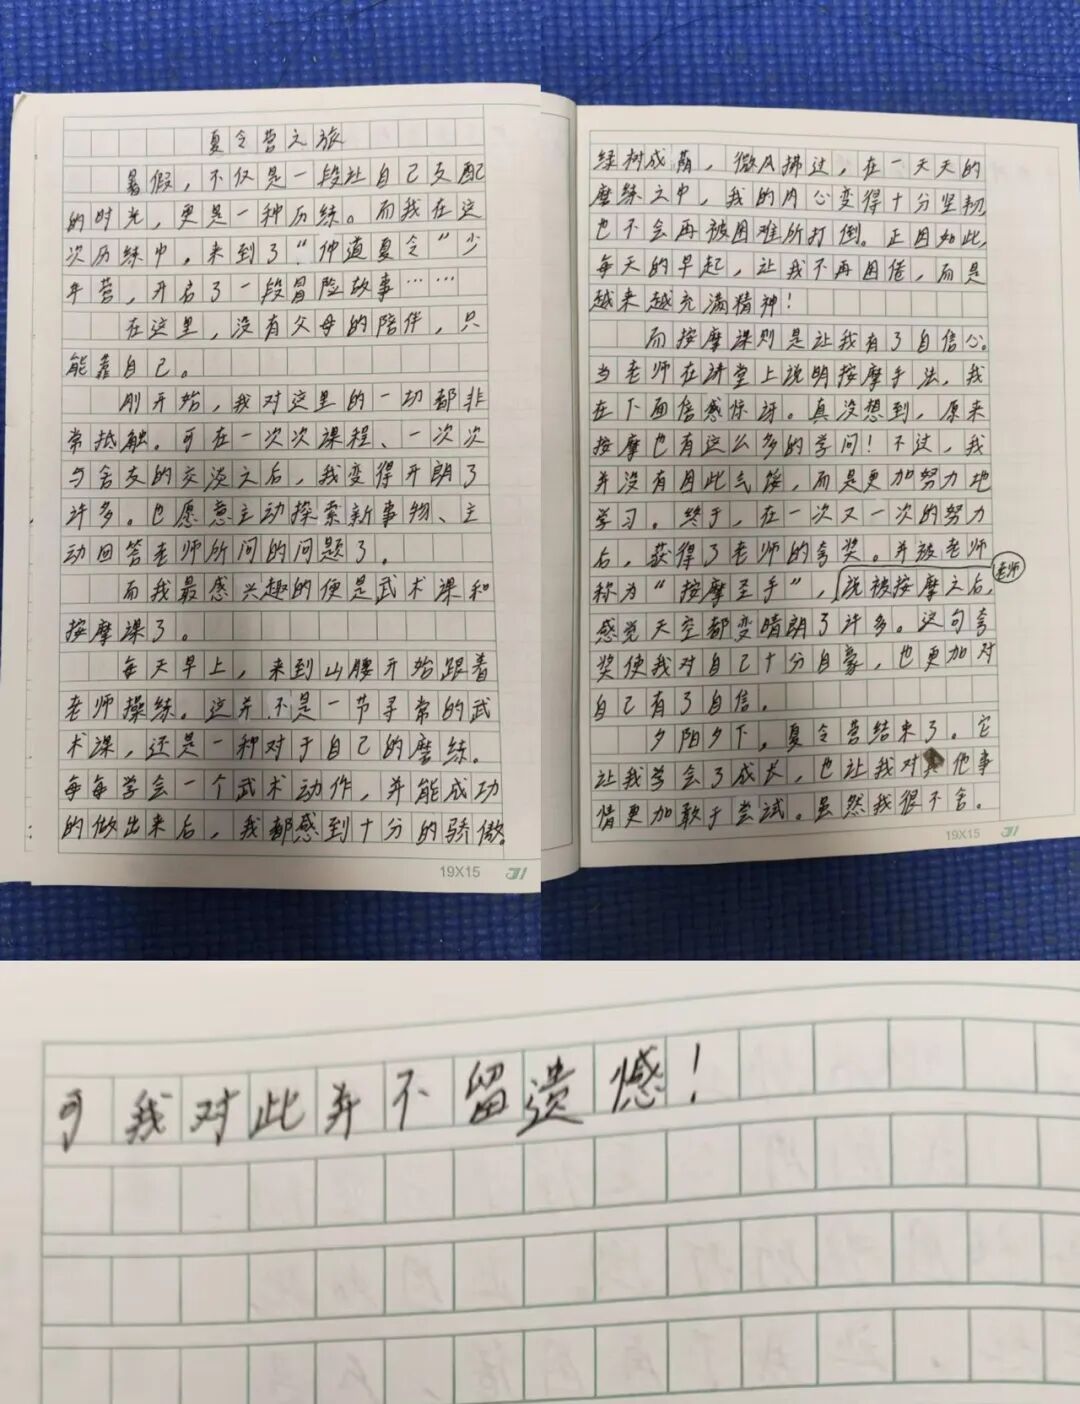 夏令营之旅
暑假，不仅是一段让自己支配
的时光，更是一种历练。而我在这
次历练中，来到了“仲道夏令”少
年营，开启了一段冒险故事……
在这里，没有父母的陪伴，只
能靠自己。
刚开始，我对这里的一切都非
常抵触。可在一次次课程、一次次
与舍友的交谈之后，我变得开朗了
许多。也愿意主动探索新事物、主
动回答老师所问的问题了。
而我最感兴趣的便是武术课和
按摩课了。
每天早上，来到山腰开始跟着
老师操练。这并不是一节寻常的武
术课，还是一种对于自己的磨练。
每每学会一个武术动作，并能成功
的做出来后，我都感到十分的骄傲。
19X15
绿树成荫，微风拂过，在一天天的
磨练之中，我的内心变得十分坚韧，
也不会再被困难所打倒。正因如此，
每天的早起，让我不再困倦，而是
越来越充满精神！
而按摩课则是让我有了自信心。
当老师在讲堂上说明按摩手法，我
在下面倍感惊讶。真没想到，原来
按摩也有这么多的学问！不过，我
并没有因此气馁，而是更加努力地
学习。终于，在一次又一次的努力
后，获得了老师的夸奖。并被老师
称为“按摩圣手”，说被按摩之后，
老师
感觉天空都变晴朗了许多。这句夸
奖使我对自己十分自豪，也更加对
自己有了自信。
夕阳夕下，夏令营结束了。它
让我学会了成长，也让我对其他事
情更加敢于尝试。虽然我很不舍。
19X15
可我对此并不留遗憾！